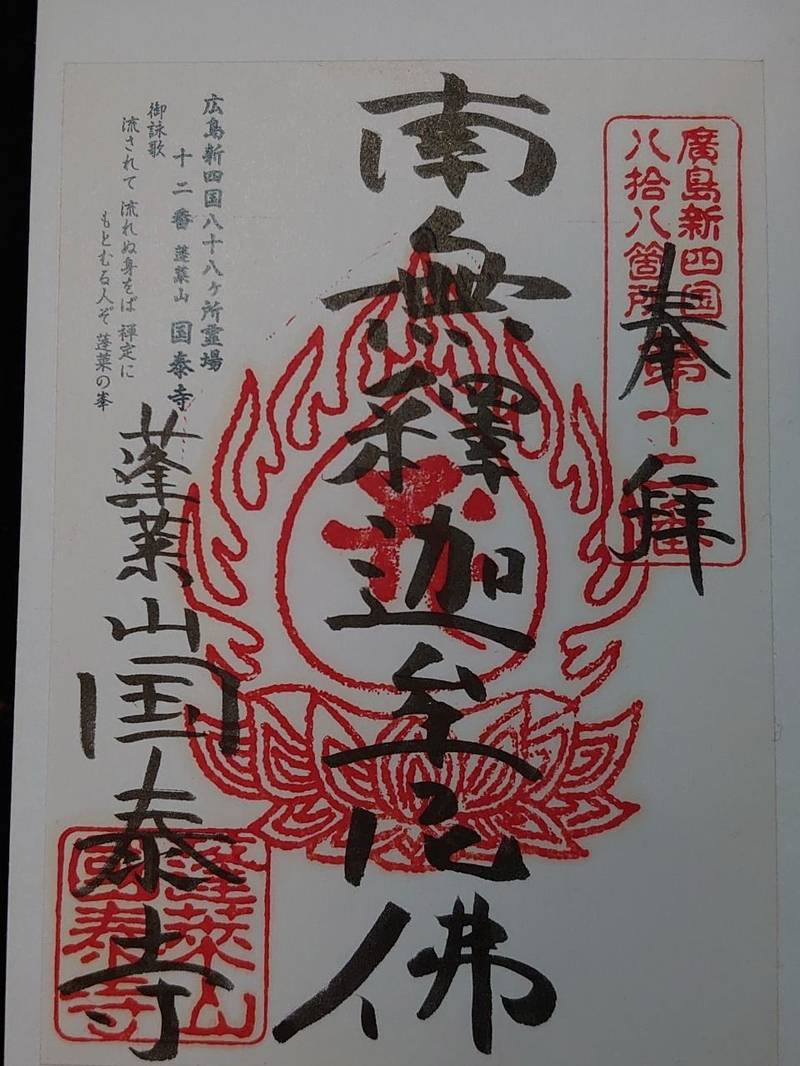 廣島新四国
八拾八箇所第十二番
奉拝
南無釋迦牟尼佛
広島新四国八十八ヶ所霊場
十二番 蓬莱山 国泰寺
御詠歌
流されて 流れぬ身をば 禅定に
もとむる人ぞ 蓬莱の峯
蓬莱山国泰寺
蓬莱山
國泰寺